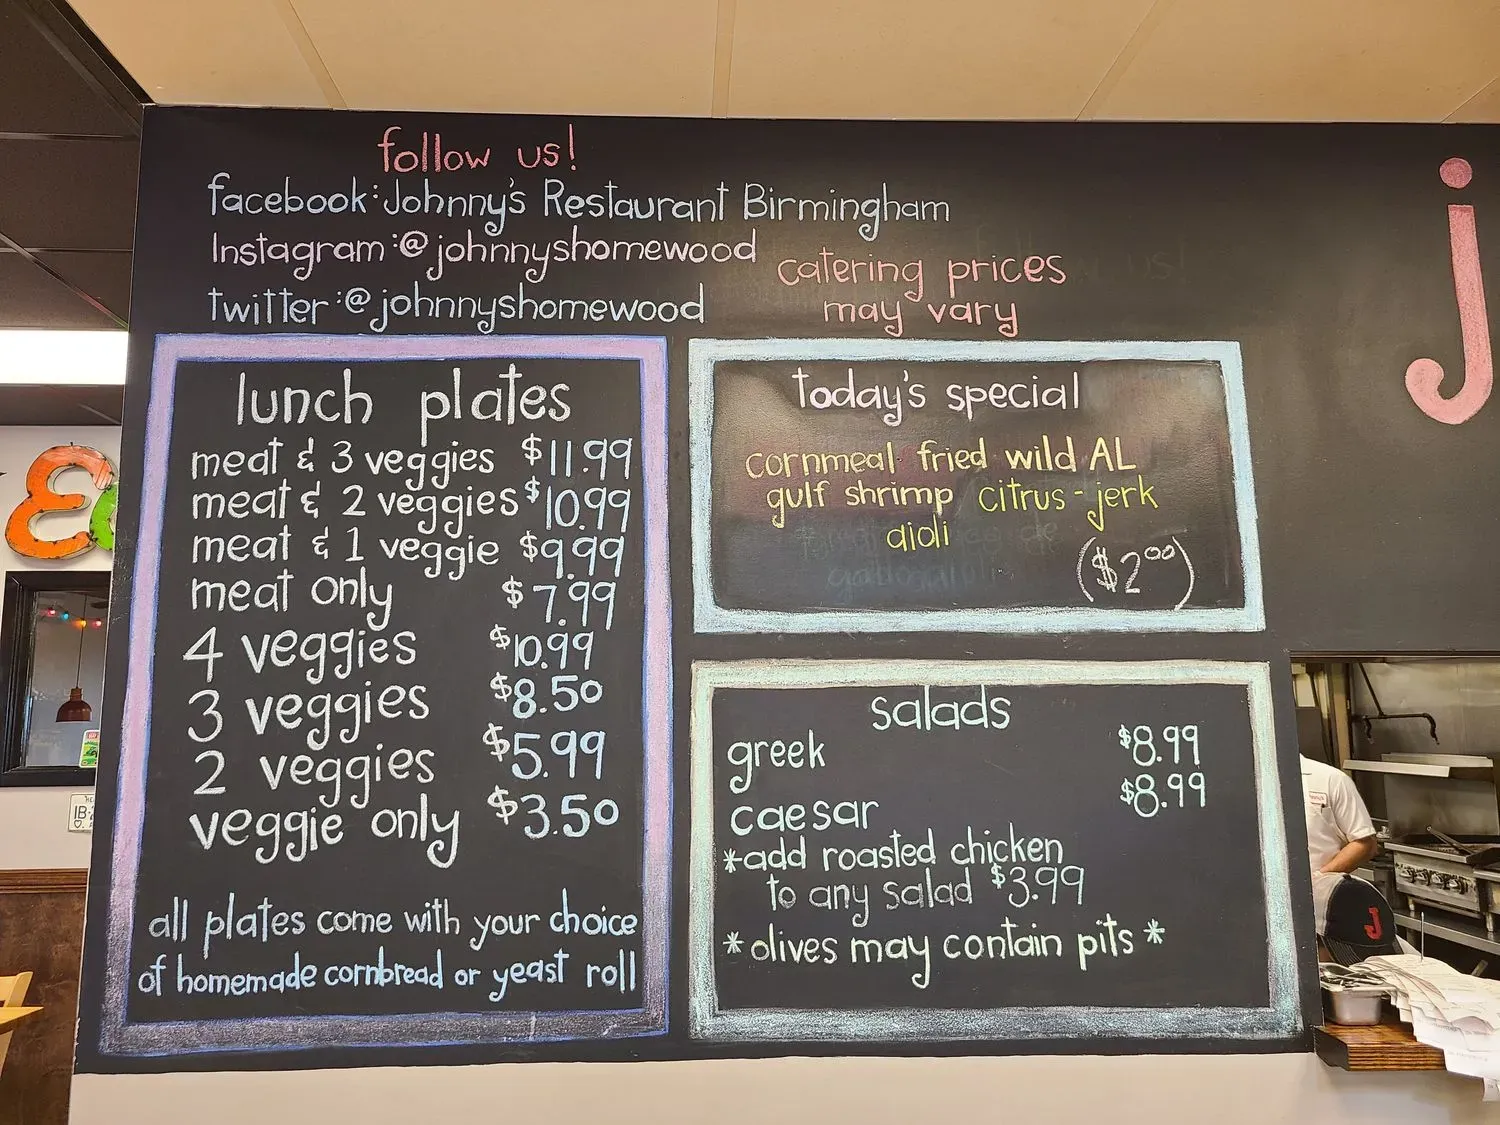 follow us!
facebook: Johnny's Restaurant Birmingham
Instagram: @johnnyshomewood
twitter: @johnnyshomewood
catering prices
may vary
lunch plates
meat & 3 veggies $11.99
meat & 2 veggies $10.99
meat & 1 veggie $9.99
meat only $7.99
4 veggies $10.99
3 veggies $8.50
2 veggies $5.99
veggie only $3.50
all plates come with your choice
of homemade cornbread or yeast roll
today's special
cornmeal fried wild AL
gulf shrimp citrus-jerk
aioli
($2.00)
salads
greek $8.99
caesar $8.99
*add roasted chicken
to any salad $3.99
*olives may contain pits*
j
J